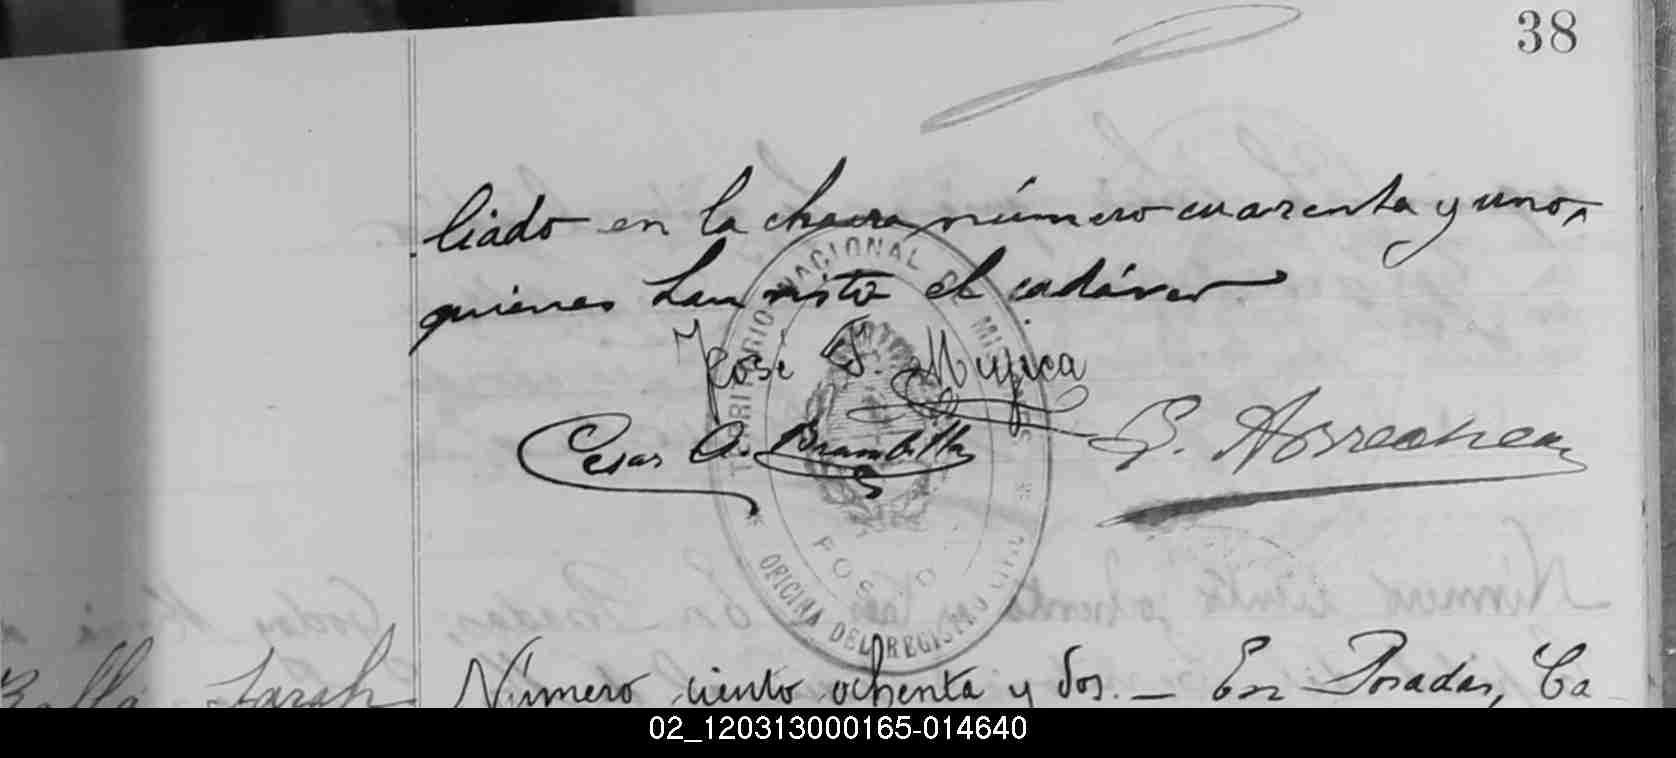 38
liado en la chacra número cuarenta y uno,
quienes han visto el cadáver
José F. Mujica
Cesar A. Brambilla
G. Arrechea
TERRITORIO NACIONAL DE MISIONES
OFICINA DEL REGISTRO CIVIL
POSADAS
Sarah
Número ciento ochenta y dos. — En Posadas, Ca-
02_120313000165-014640